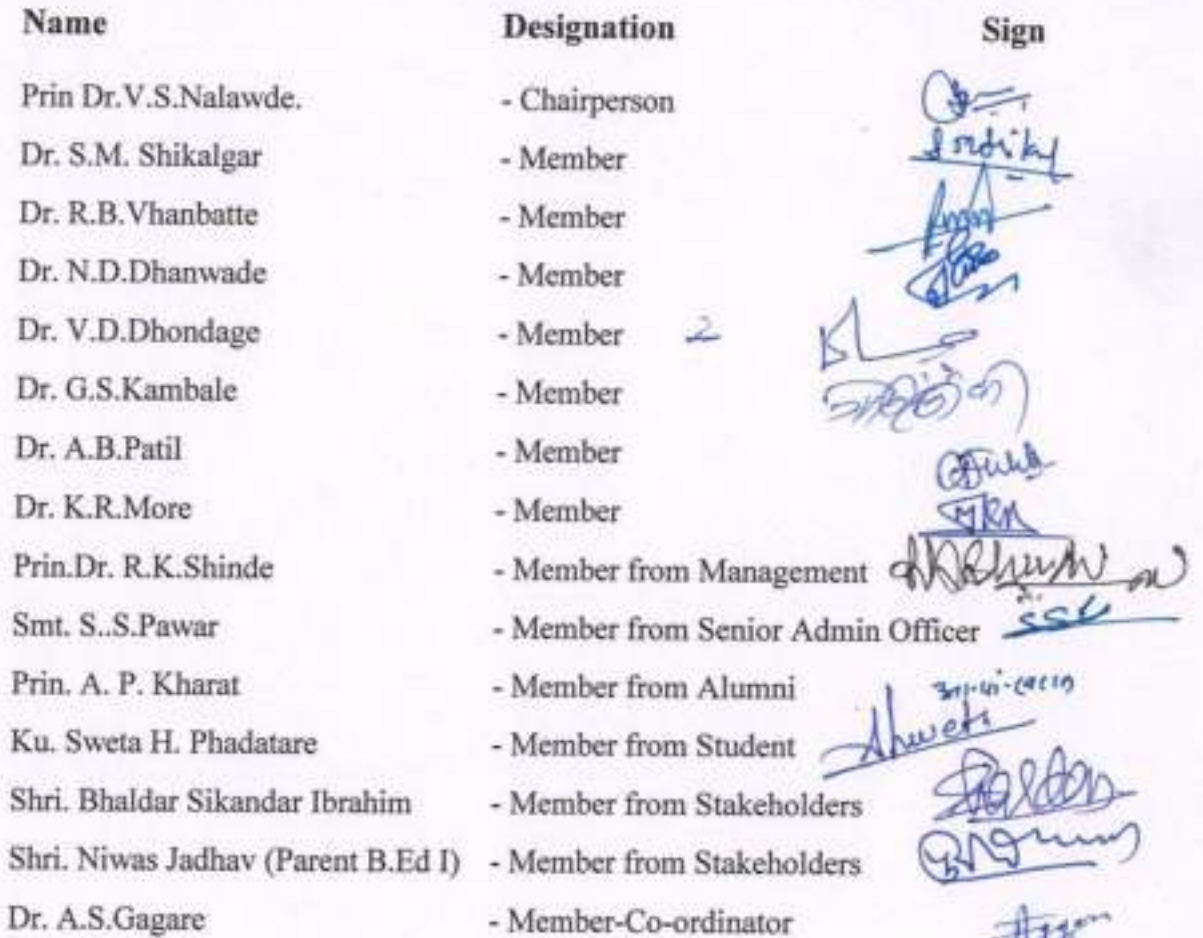 Name Designation Sign
Prin Dr.V.S.Nalawde. - Chairperson
Dr. S.M. Shikalgar - Member
Dr. R.B.Vhanbatte - Member
Dr. N.D.Dhanwade - Member
Dr. V.D.Dhondage - Member 2
Dr. G.S.Kambale - Member
Dr. A.B.Patil - Member
Dr. K.R.More - Member
Prin.Dr. R.K.Shinde - Member from Management
Smt. S..S.Pawar - Member from Senior Admin Officer
Prin. A. P. Kharat - Member from Alumni
Ku. Sweta H. Phadatare - Member from Student Shweta
Shri. Bhaldar Sikandar Ibrahim - Member from Stakeholders
Shri. Niwas Jadhav (Parent B.Ed I) - Member from Stakeholders
Dr. A.S.Gagare - Member-Co-ordinator